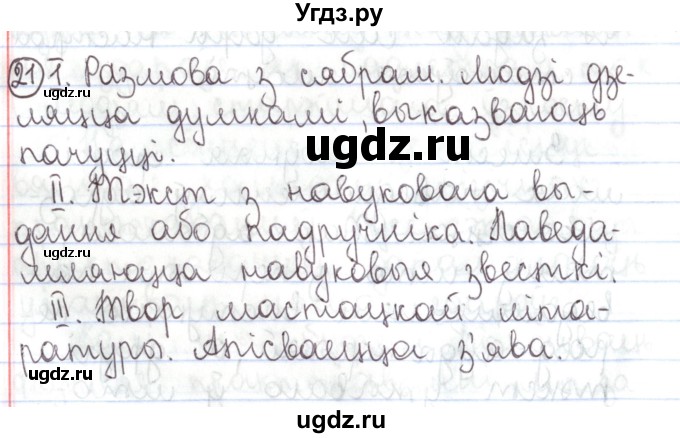 Угдз.ру
21 I. Размова з сябрам. Людзі дзе-
ляцца думкамі, выказваюць
пачуцці.
II. Тэкст з навуковага вы-
дання або падручніка. Паведа-
мляюцца навуковыя звесткі.
III. Твор мастацкай літа-
ратуры. Апісваецца з'ява.
gdz.ru
ugdz.ru
ugdz.ru
ugdz.ru
ugdz.ru
ugdz.ru
ugdz.ru
ugdz.ru